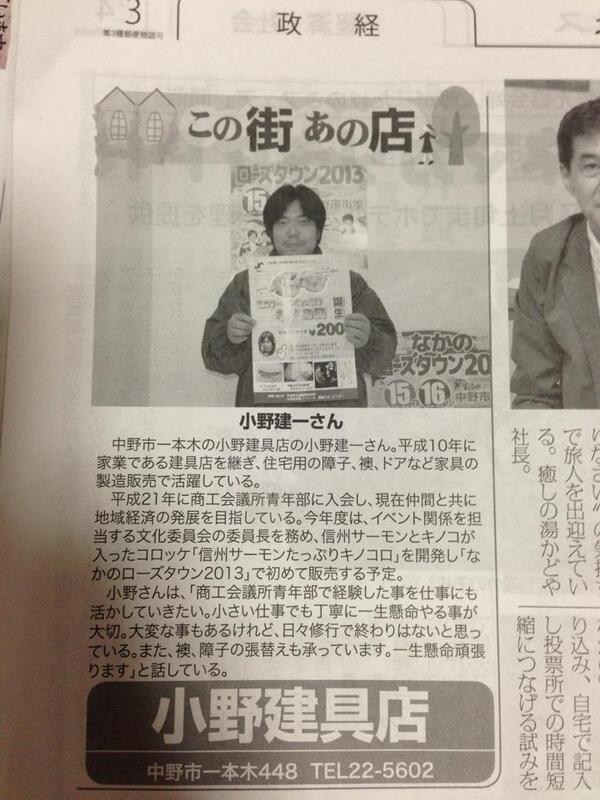 3
第3種郵便物認可
政経
この街あの店
ローズタウン2013
15
誕生
¥200
なかの
ローズタウン20
15・16
中野市
小野建一さん
中野市一本木の小野建具店の小野建一さん。平成10年に
家業である建具店を継ぎ、住宅用の障子、襖、ドアなど家具の
製造販売で活躍している。
平成21年に商工会議所青年部に入会し、現在仲間と共に
地域経済の発展を目指している。今年度は、イベント関係を担
当する文化委員会の委員長を務め、信州サーモンとキノコが
入ったコロッケ「信州サーモンたっぷりキノコロ」を開発し「な
かのローズタウン2013」で初めて販売する予定。
小野さんは、「商工会議所青年部で経験した事を仕事にも
活かしていきたい。小さい仕事でも丁寧に一生懸命やる事が
大切。大変な事もあるけれど、日々修行で終わりはないと思っ
ている。また、襖、障子の張替えも承っています。一生懸命頑張
ります」と話している。
小野建具店
中野市一本木448 TEL22-5602
で旅人を出迎えてい
る。癒しの湯かどや
社長。
り込み、自宅で記入
し投票所での時間短
縮につなげる試みを